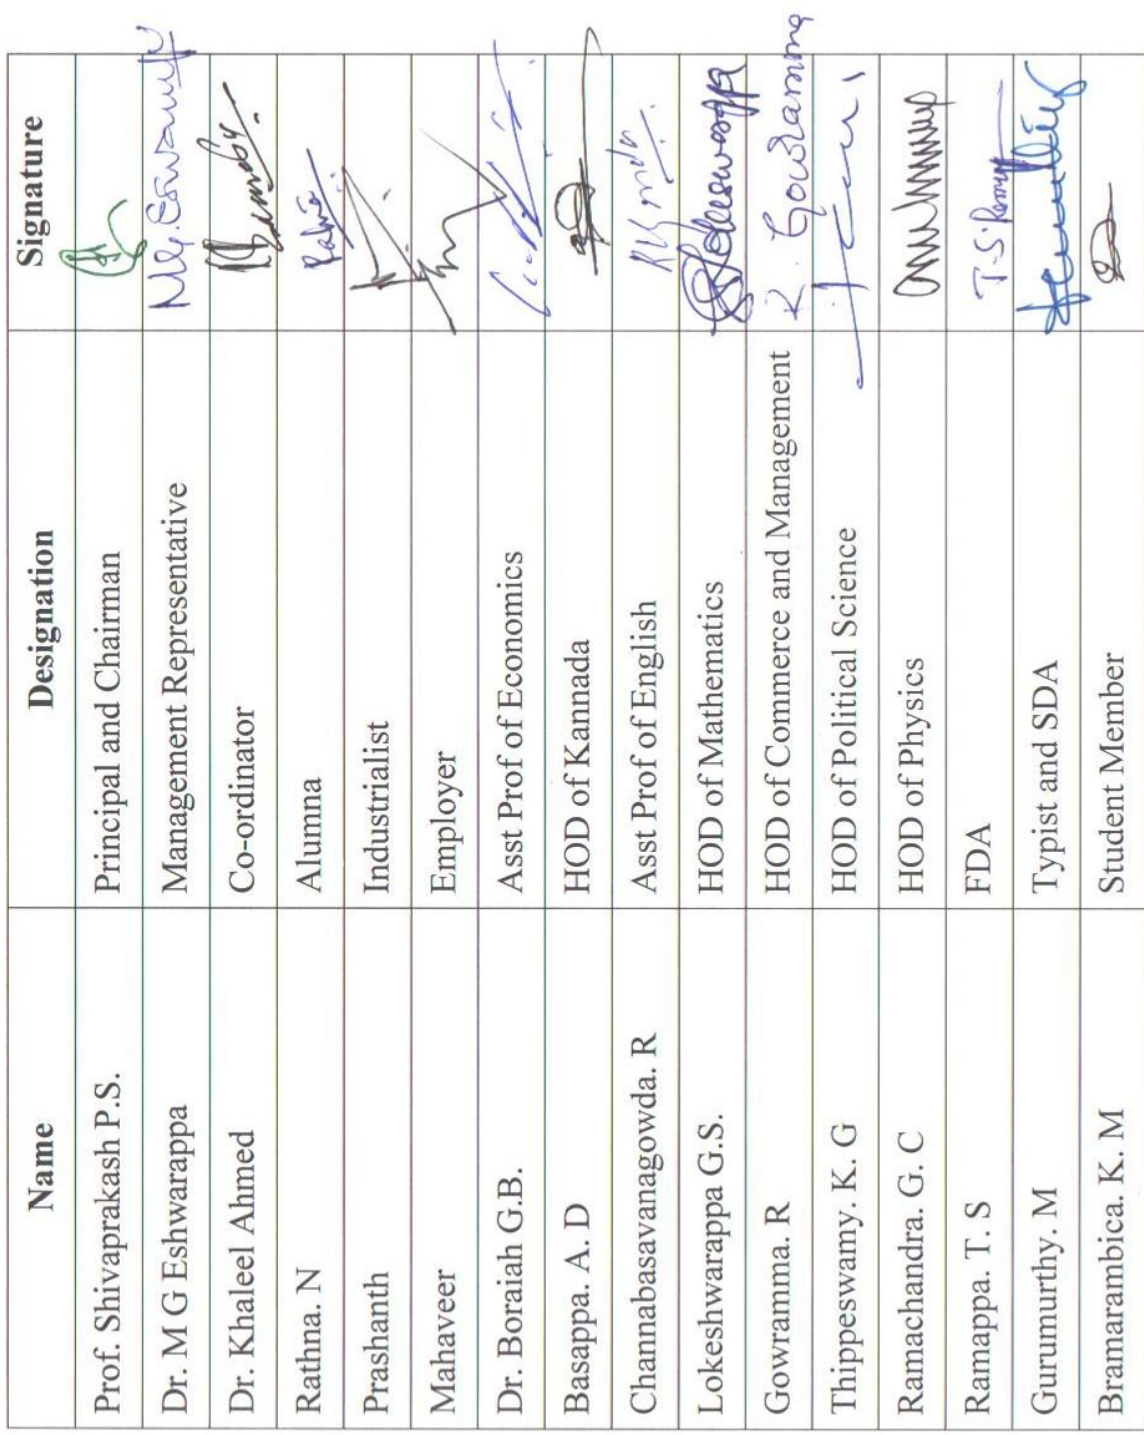 Name Designation Signature
Prof. Shivaprakash P.S. Principal and Chairman
Dr. M G Eshwarappa Management Representative
Dr. Khaleel Ahmed Co-ordinator
Rathna. N Alumna
Prashanth Industrialist
Mahaveer Employer
Dr. Boraiah G.B. Asst Prof of Economics
Basappa. A. D HOD of Kannada
Channabasavanagowda. R Asst Prof of English
Lokeshwarappa G.S. HOD of Mathematics
Gowramma. R HOD of Commerce and Management R. Gowramma
Thippeswamy. K. G HOD of Political Science
Ramachandra. G. C HOD of Physics
Ramappa. T. S FDA T.S.
Gurumurthy. M Typist and SDA
Bramarambica. K. M Student Member